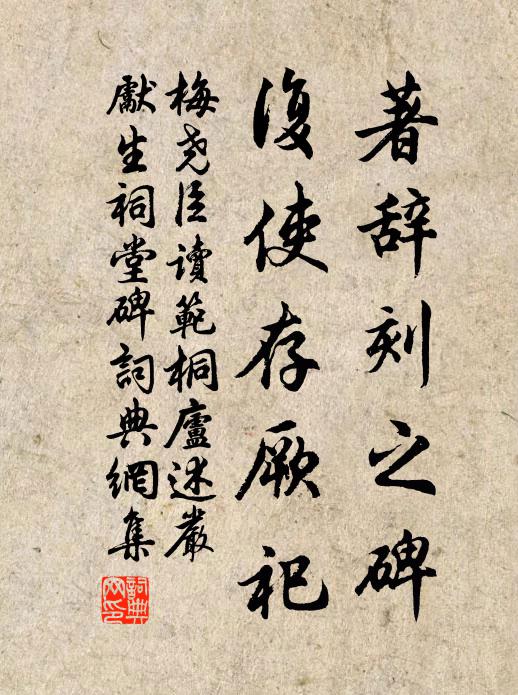 著辞刻之碑
復使存厥祀
梅尧臣讀範桐廬述嚴
獻生祠堂碑詞典網集
詞典網印